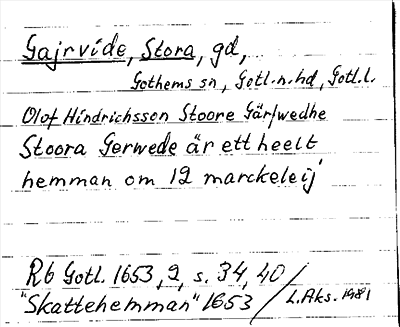 Gajrvide, Stora, gd,
Gothems sn, Gotl.n.hd, Gotl.l.
Olof Hindrichsson Stoore Gärſwedhe
Stoora Gerwede är ett heelt
hemman om 12 marckeleij
Rb Gotl. 1653, 2, s. 34, 40/
"Skattehemman" 1653 / L.Aks. 1981